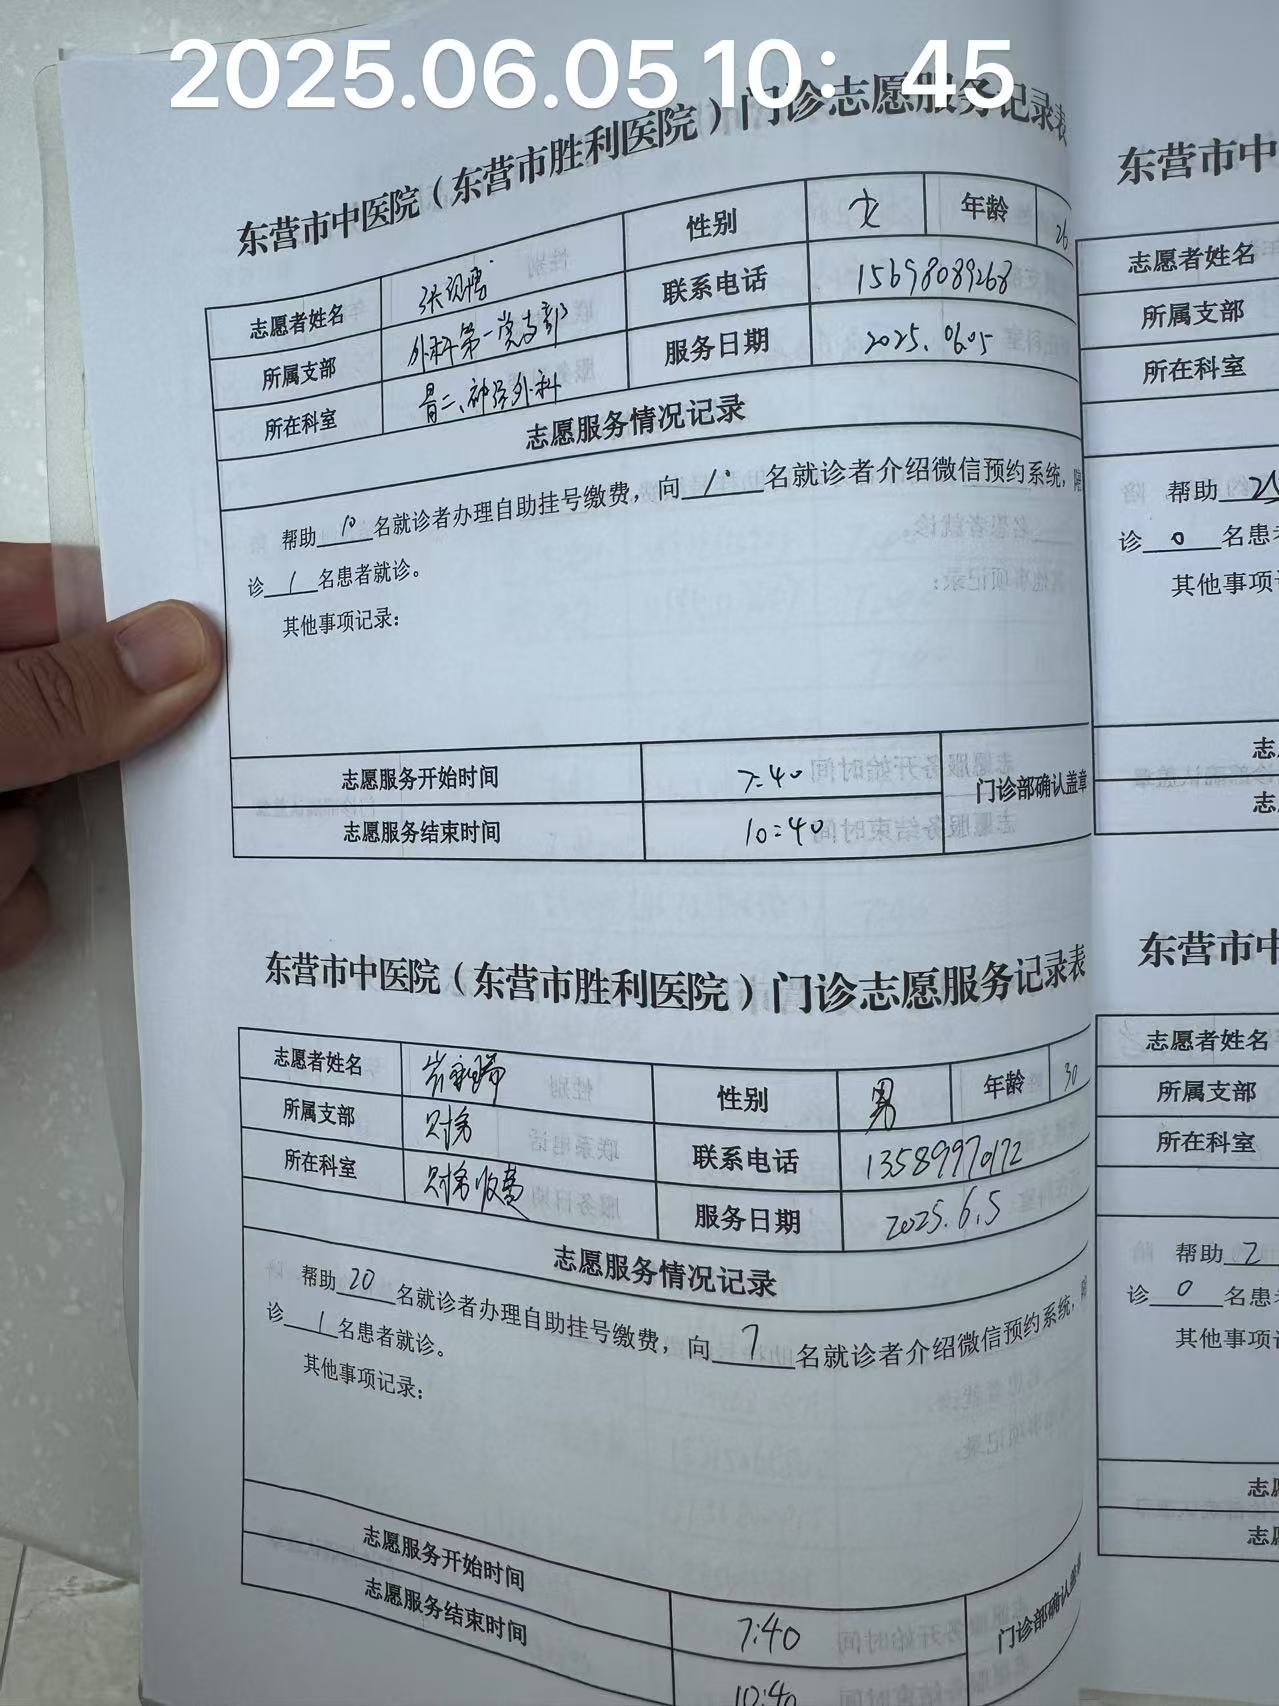 2025.06.05 10：45
东营市中医院（东营市胜利医院）门诊志愿服务记录表
志愿者姓名 张 性别 女 年龄 26
所属支部 外科第一党支部 联系电话 15698089268
所在科室 骨二、神经外科 服务日期 2025.06.05
志愿服务情况记录
帮助 10 名就诊者办理自助挂号缴费，向 10 名就诊者介绍微信预约系统，陪
诊 1 名患者就诊。
其他事项记录：
志愿服务开始时间 7:40 门诊部确认盖章
志愿服务结束时间 10:40
东营市中医院（东营市胜利医院）门诊志愿服务记录表
志愿者姓名 性别 男 年龄 30
所属支部 财务 联系电话 13589970172
所在科室 财务收费 服务日期 2025.6.5
志愿服务情况记录
帮助 20 名就诊者办理自助挂号缴费，向 7 名就诊者介绍微信预约系统，陪
诊 1 名患者就诊。
其他事项记录：
志愿服务开始时间 7:40 门诊部确认盖章
志愿服务结束时间 10:40
东营市中
志愿者姓名
所属支部
所在科室
帮助
诊 0 名患者
其他事项
志
志
东营市中
志愿者姓名
所属支部
所在科室
帮助 2
诊 0 名患者
其他事项
志
志